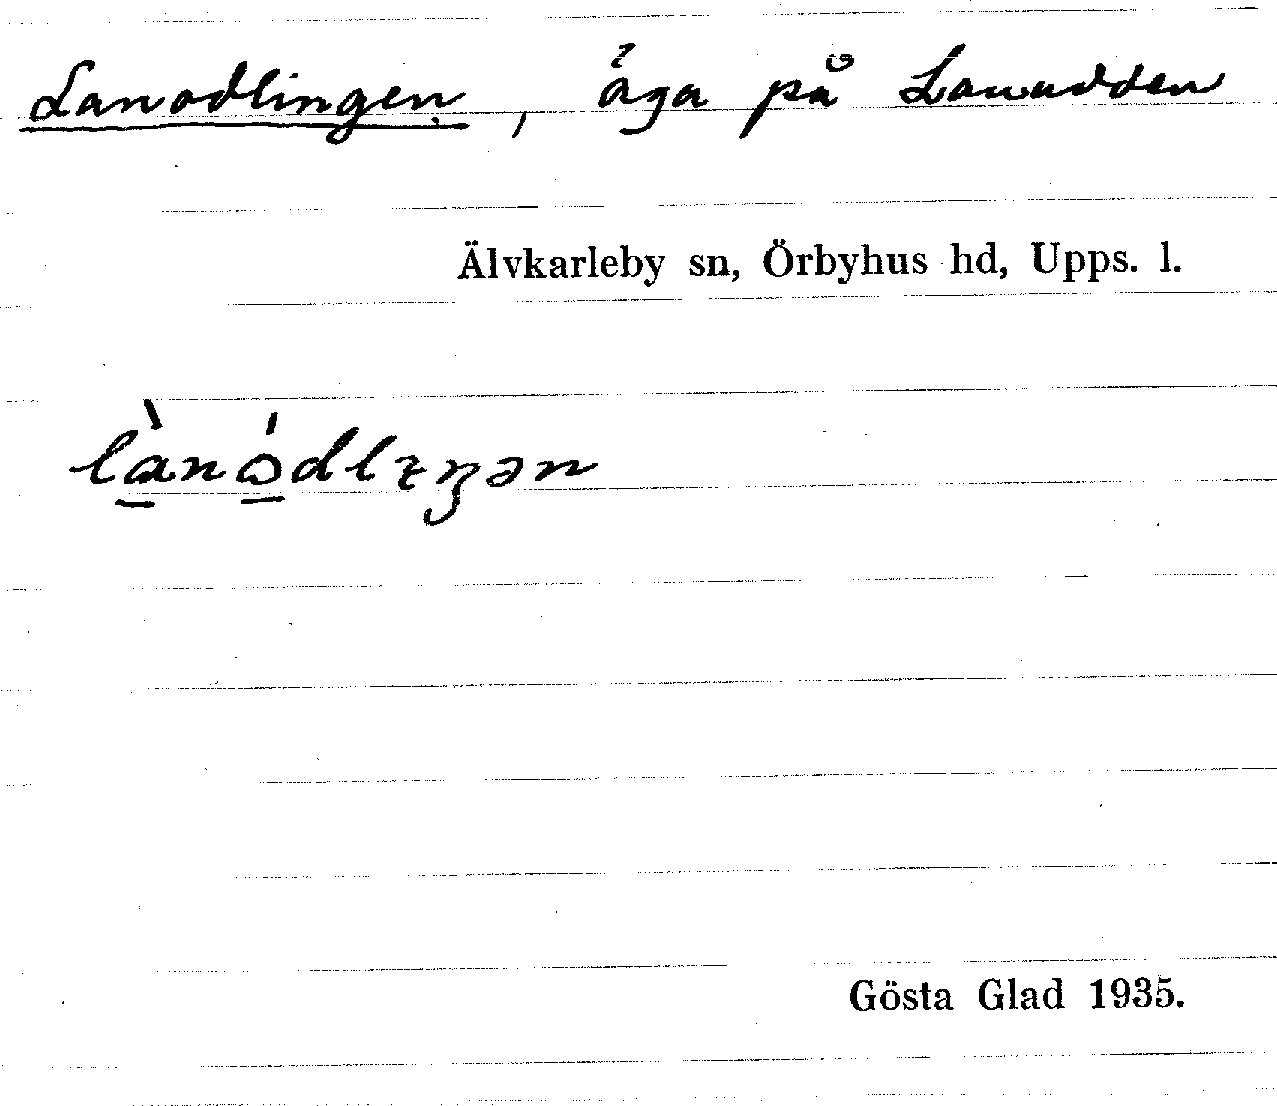 Lanodlingen, äga på Lanudden
Älvkarleby sn, Örbyhus hd, Upps. l.
Gösta Glad 1935.